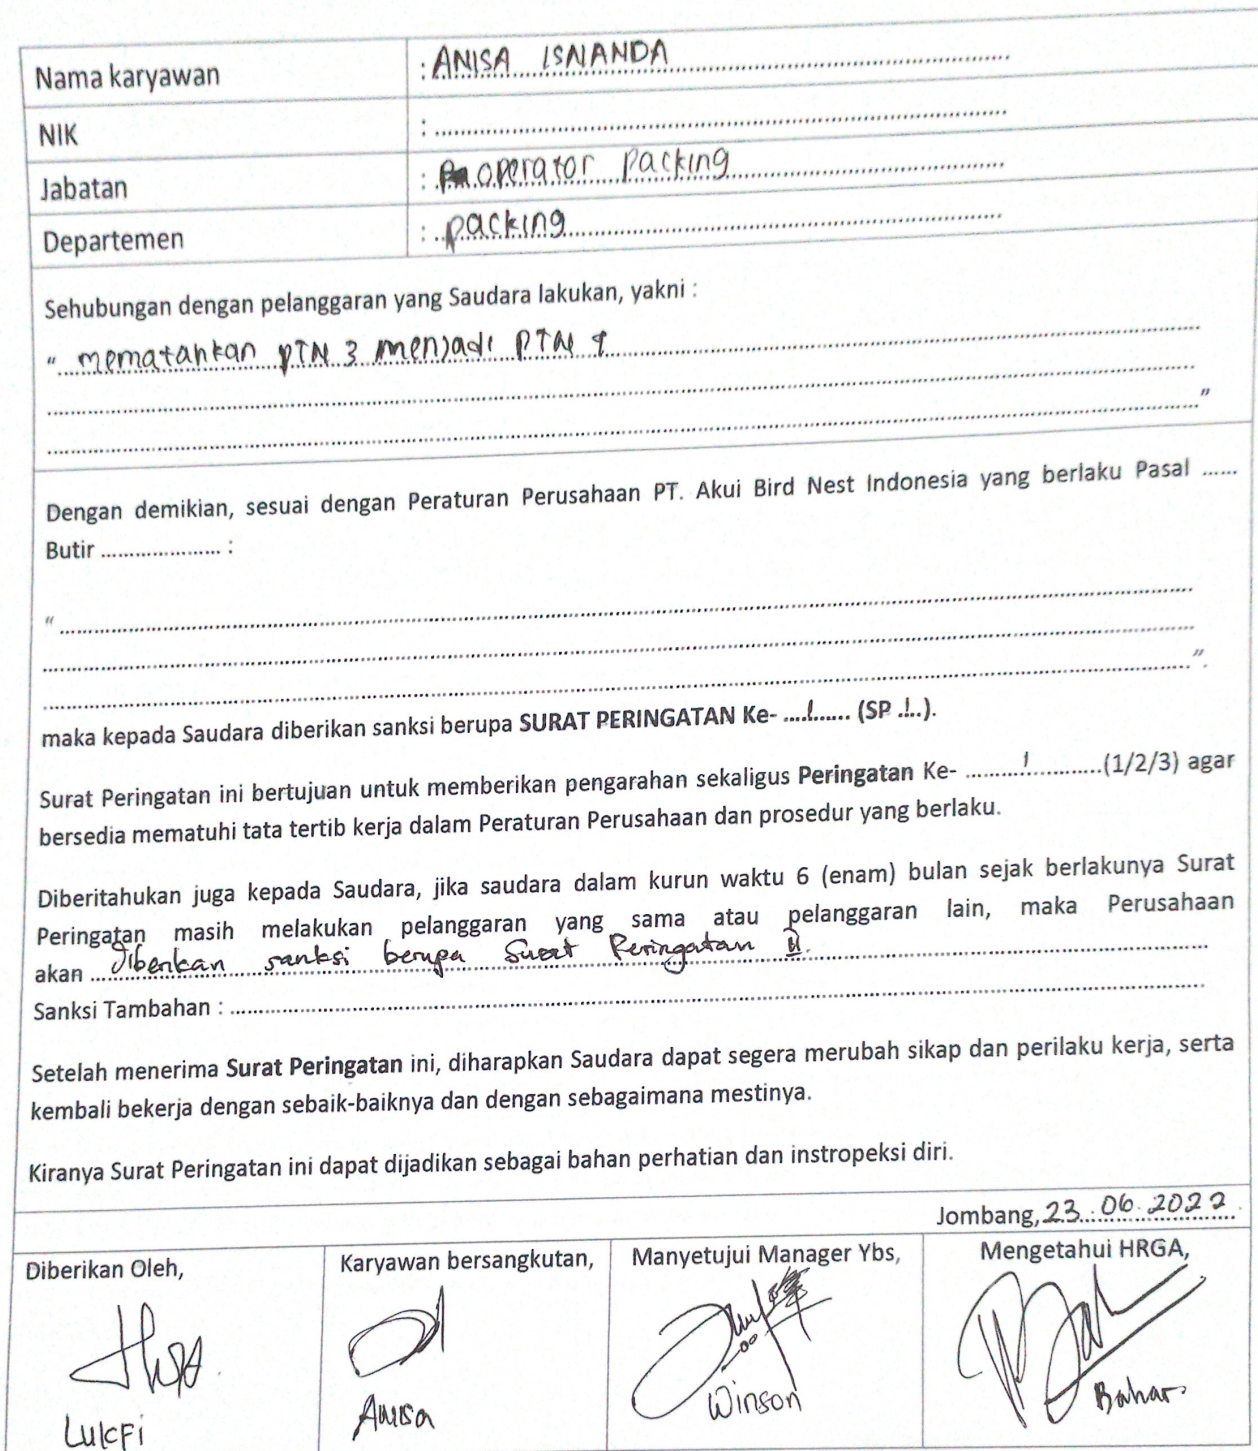 Nama karyawan : ANISA ISNANDA
NIK :
Jabatan : operator packing
Departemen : packing
Sehubungan dengan pelanggaran yang Saudara lakukan, yakni :
" mematahkan PTN 3 menjadi PTN
"
Dengan demikian, sesuai dengan Peraturan Perusahaan PT. Akui Bird Nest Indonesia yang berlaku Pasal ......
Butir ..................... :
"
".
maka kepada Saudara diberikan sanksi berupa SURAT PERINGATAN Ke- ....1...... (SP .1..).
Surat Peringatan ini bertujuan untuk memberikan pengarahan sekaligus Peringatan Ke- .........1...........(1/2/3) agar
bersedia mematuhi tata tertib kerja dalam Peraturan Perusahaan dan prosedur yang berlaku.
Diberitahukan juga kepada Saudara, jika saudara dalam kurun waktu 6 (enam) bulan sejak berlakunya Surat
Peringatan masih melakukan pelanggaran yang sama atau pelanggaran lain, maka Perusahaan
akan diberikan sanksi berupa Surat Peringatan II.
Sanksi Tambahan :
Setelah menerima Surat Peringatan ini, diharapkan Saudara dapat segera merubah sikap dan perilaku kerja, serta
kembali bekerja dengan sebaik-baiknya dan dengan sebagaimana mestinya.
Kiranya Surat Peringatan ini dapat dijadikan sebagai bahan perhatian dan instropeksi diri.
Jombang, 23 . 06 . 2022
Diberikan Oleh, Karyawan bersangkutan, Manyetujui Manager Ybs, Mengetahui HRGA,
LukFi Anisa Winson Bahar